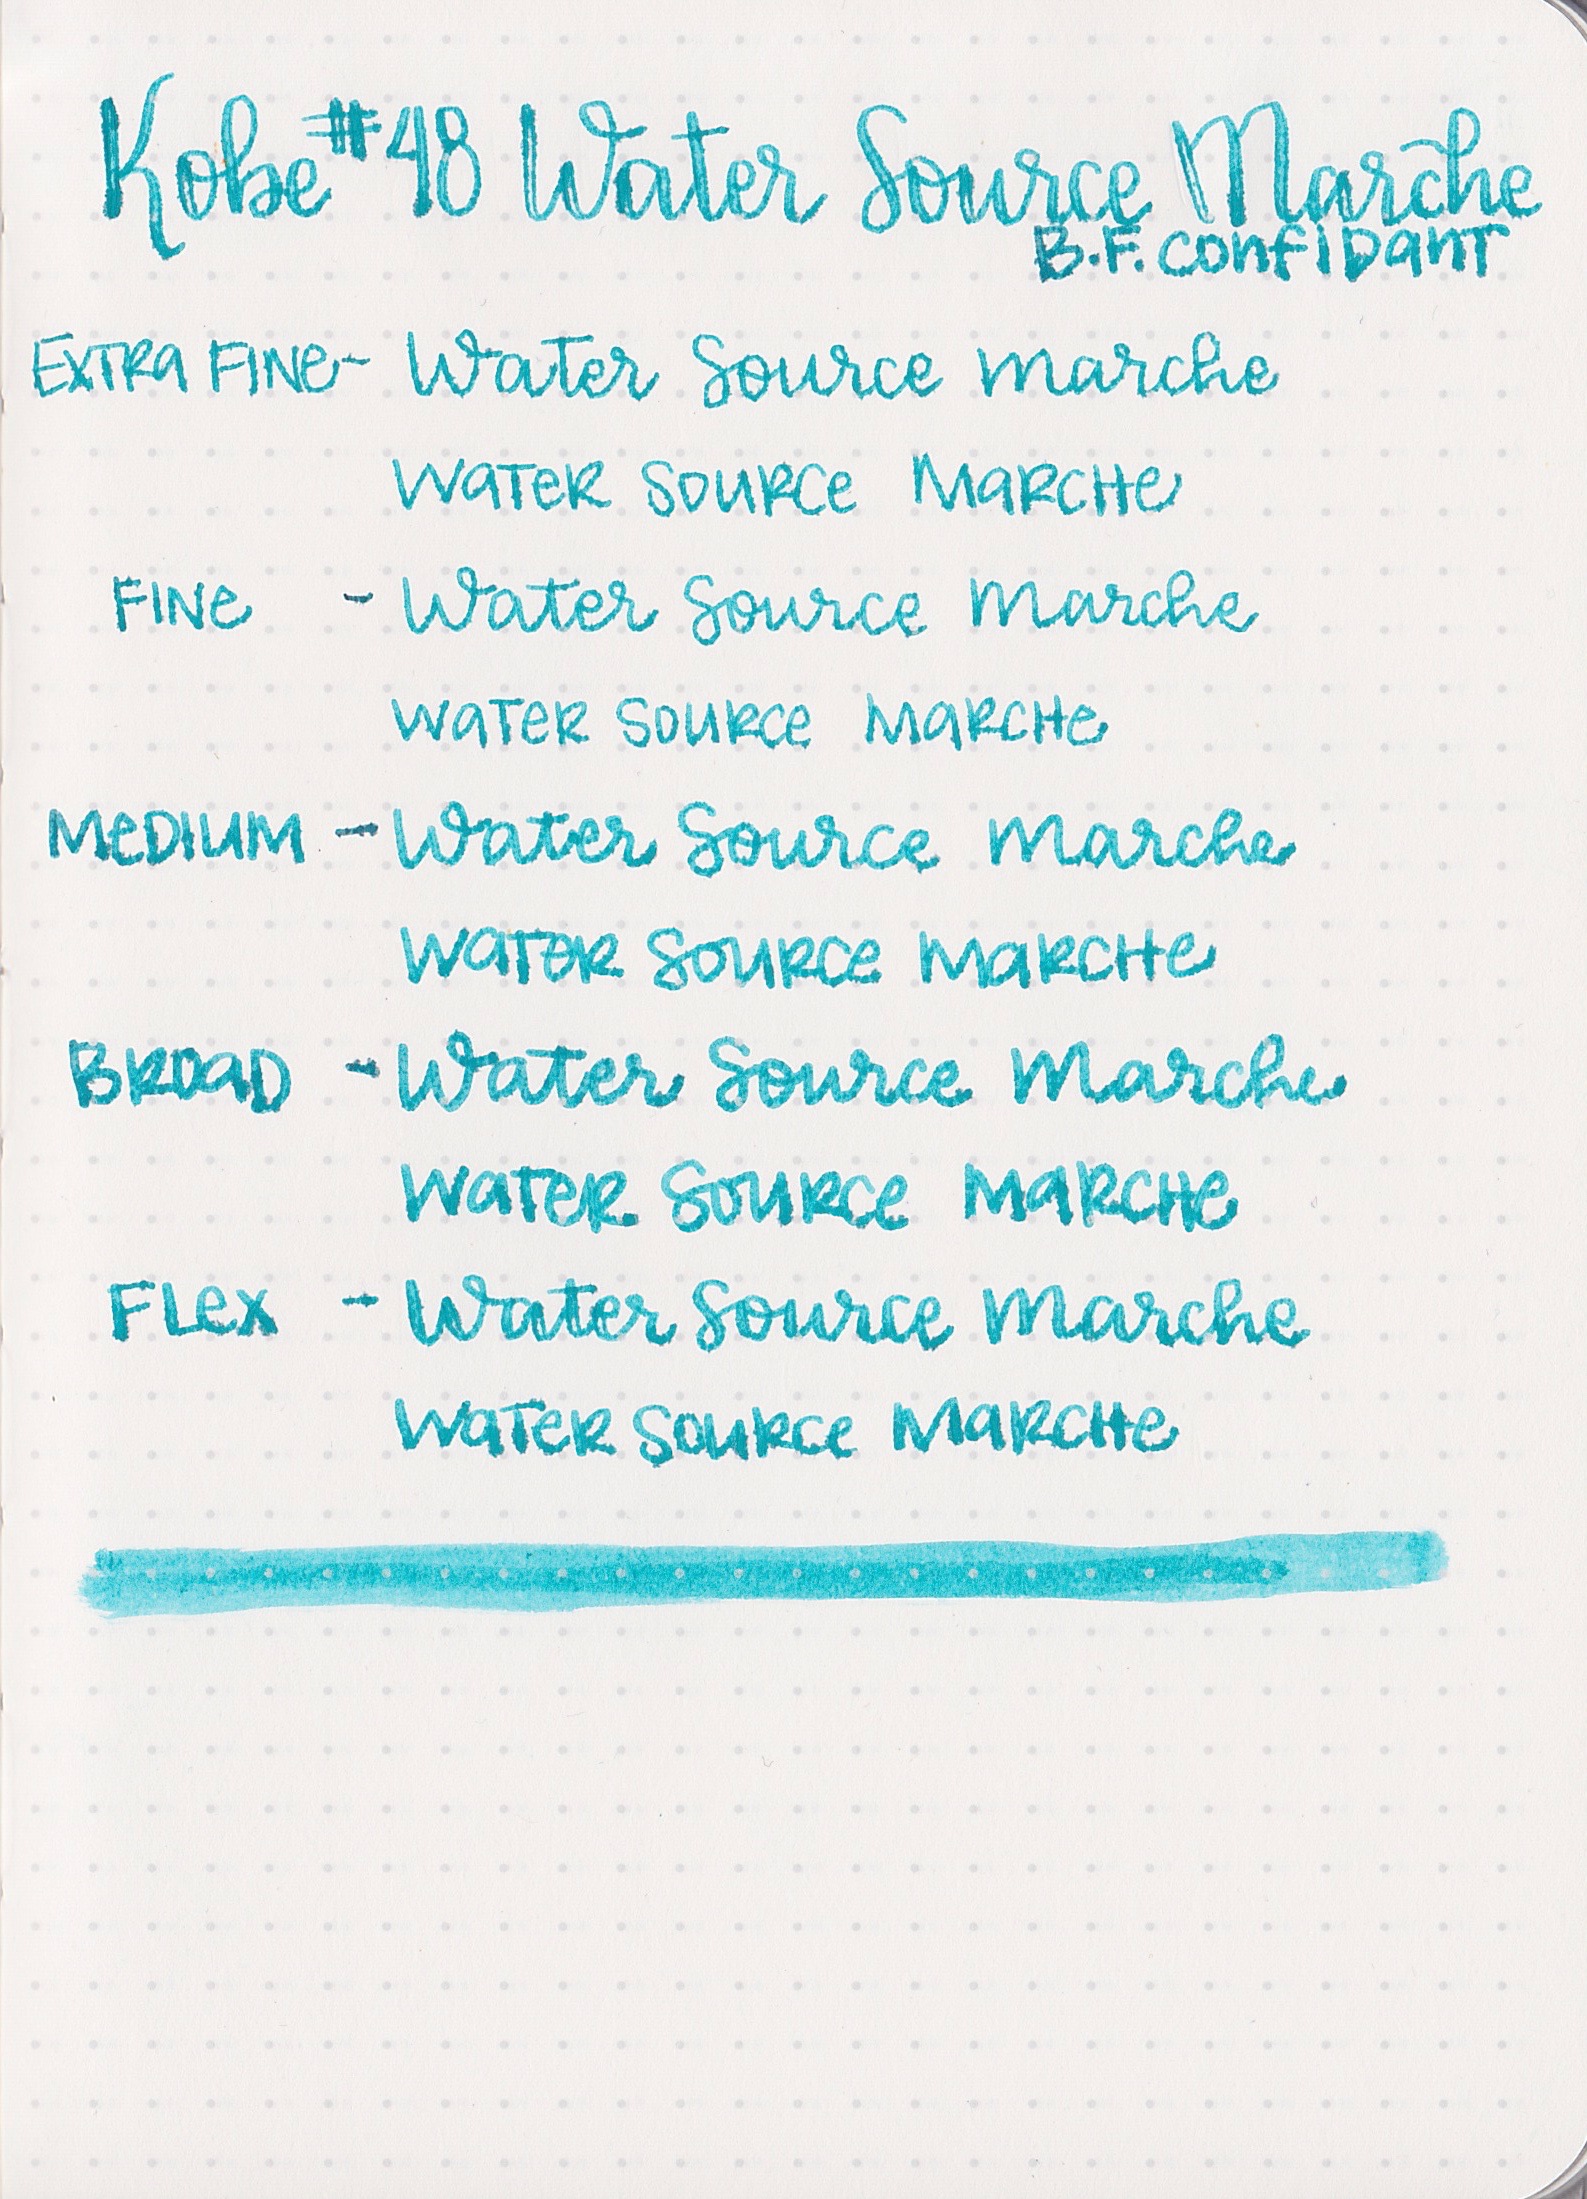 Kobe #48 Water Source Marche
B.F. Confidant
Extra Fine - Water Source Marche
Water Source Marche
Fine - Water Source Marche
Water Source Marche
Medium - Water Source Marche
Water Source Marche
Broad - Water Source Marche
Water Source Marche
Flex - Water Source Marche
Water Source Marche